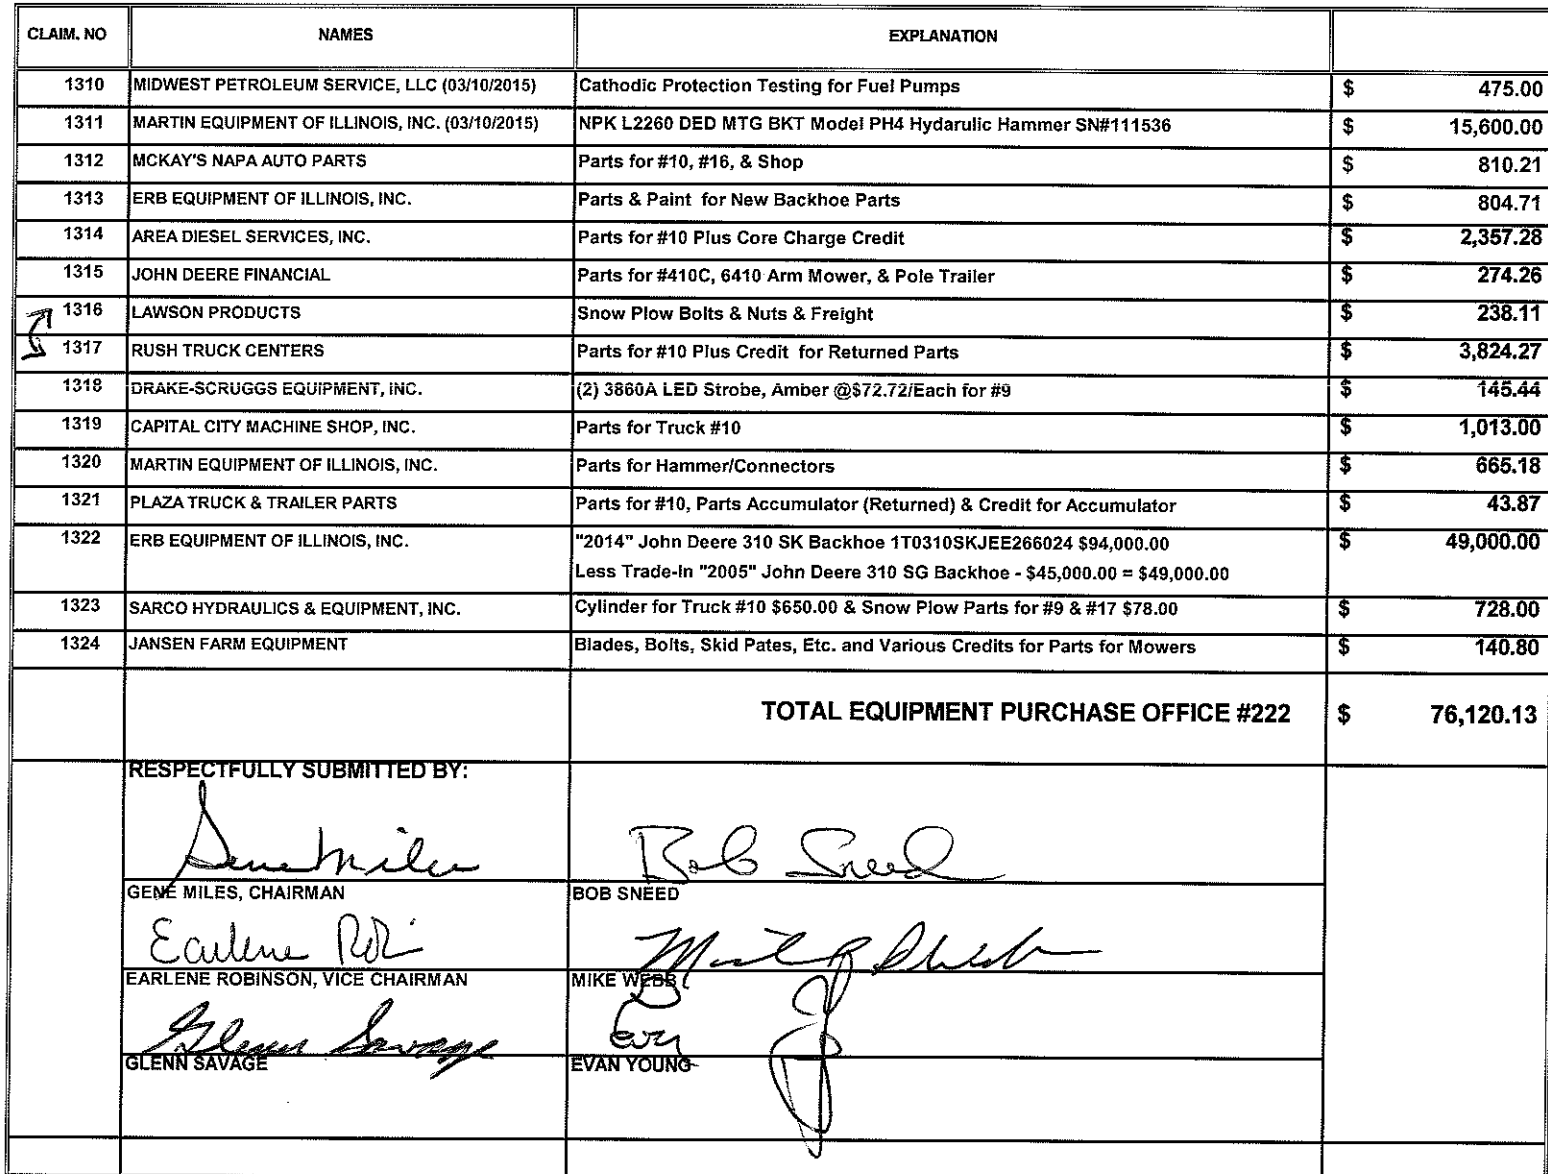 CLAIM. NO NAMES EXPLANATION
1310 MIDWEST PETROLEUM SERVICE, LLC (03/10/2015) Cathodic Protection Testing for Fuel Pumps $ 475.00
1311 MARTIN EQUIPMENT OF ILLINOIS, INC. (03/10/2015) NPK L2260 DED MTG BKT Model PH4 Hydarulic Hammer SN#111536 $ 15,600.00
1312 MCKAY'S NAPA AUTO PARTS Parts for #10, #16, & Shop $ 810.21
1313 ERB EQUIPMENT OF ILLINOIS, INC. Parts & Paint for New Backhoe Parts $ 804.71
1314 AREA DIESEL SERVICES, INC. Parts for #10 Plus Core Charge Credit $ 2,357.28
1315 JOHN DEERE FINANCIAL Parts for #410C, 6410 Arm Mower, & Pole Trailer $ 274.26
1316 LAWSON PRODUCTS Snow Plow Bolts & Nuts & Freight $ 238.11
1317 RUSH TRUCK CENTERS Parts for #10 Plus Credit for Returned Parts $ 3,824.27
1318 DRAKE-SCRUGGS EQUIPMENT, INC. (2) 3860A LED Strobe, Amber @$72.72/Each for #9 $ 145.44
1319 CAPITAL CITY MACHINE SHOP, INC. Parts for Truck #10 $ 1,013.00
1320 MARTIN EQUIPMENT OF ILLINOIS, INC. Parts for Hammer/Connectors $ 665.18
1321 PLAZA TRUCK & TRAILER PARTS Parts for #10, Parts Accumulator (Returned) & Credit for Accumulator $ 43.87
1322 ERB EQUIPMENT OF ILLINOIS, INC. "2014" John Deere 310 SK Backhoe 1T0310SKJEE266024 $94,000.00 $ 49,000.00
Less Trade-In "2005" John Deere 310 SG Backhoe - $45,000.00 = $49,000.00
1323 SARCO HYDRAULICS & EQUIPMENT, INC. Cylinder for Truck #10 $650.00 & Snow Plow Parts for #9 & #17 $78.00 $ 728.00
1324 JANSEN FARM EQUIPMENT Blades, Bolts, Skid Pates, Etc. and Various Credits for Parts for Mowers $ 140.80
TOTAL EQUIPMENT PURCHASE OFFICE #222 $ 76,120.13
RESPECTFULLY SUBMITTED BY:
Gene Miles Bob Sneed
GENE MILES, CHAIRMAN BOB SNEED
Earlene
EARLENE ROBINSON, VICE CHAIRMAN MIKE WEBB
Glenn Savage Evan
GLENN SAVAGE EVAN YOUNG